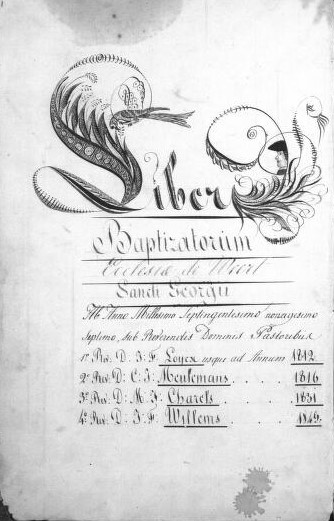 Liber
Baptizatorum
Ecclesiæ de Weert
Sancti Georgii
Ab Anno Millesimo Septingentesimo nonagesimo
septimo, sub Reverendis Dominis Pastoribus
1º Rev: D: J: F: Loyex usque ad Annum 1812
2º Rev: D: C: J: Meulemans . . . . 1816
3º Rev: D: M: J: Charels . . . . 1831
4º Rev: D: J: F: Willems . . . . 1849.